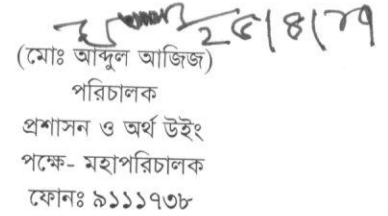 (মোঃ আব্দুল আজিজ)
পরিচালক
প্রশাসন ও অর্থ উইং
পক্ষে- মহাপরিচালক
ফোনঃ ৯১১১৭৩৮